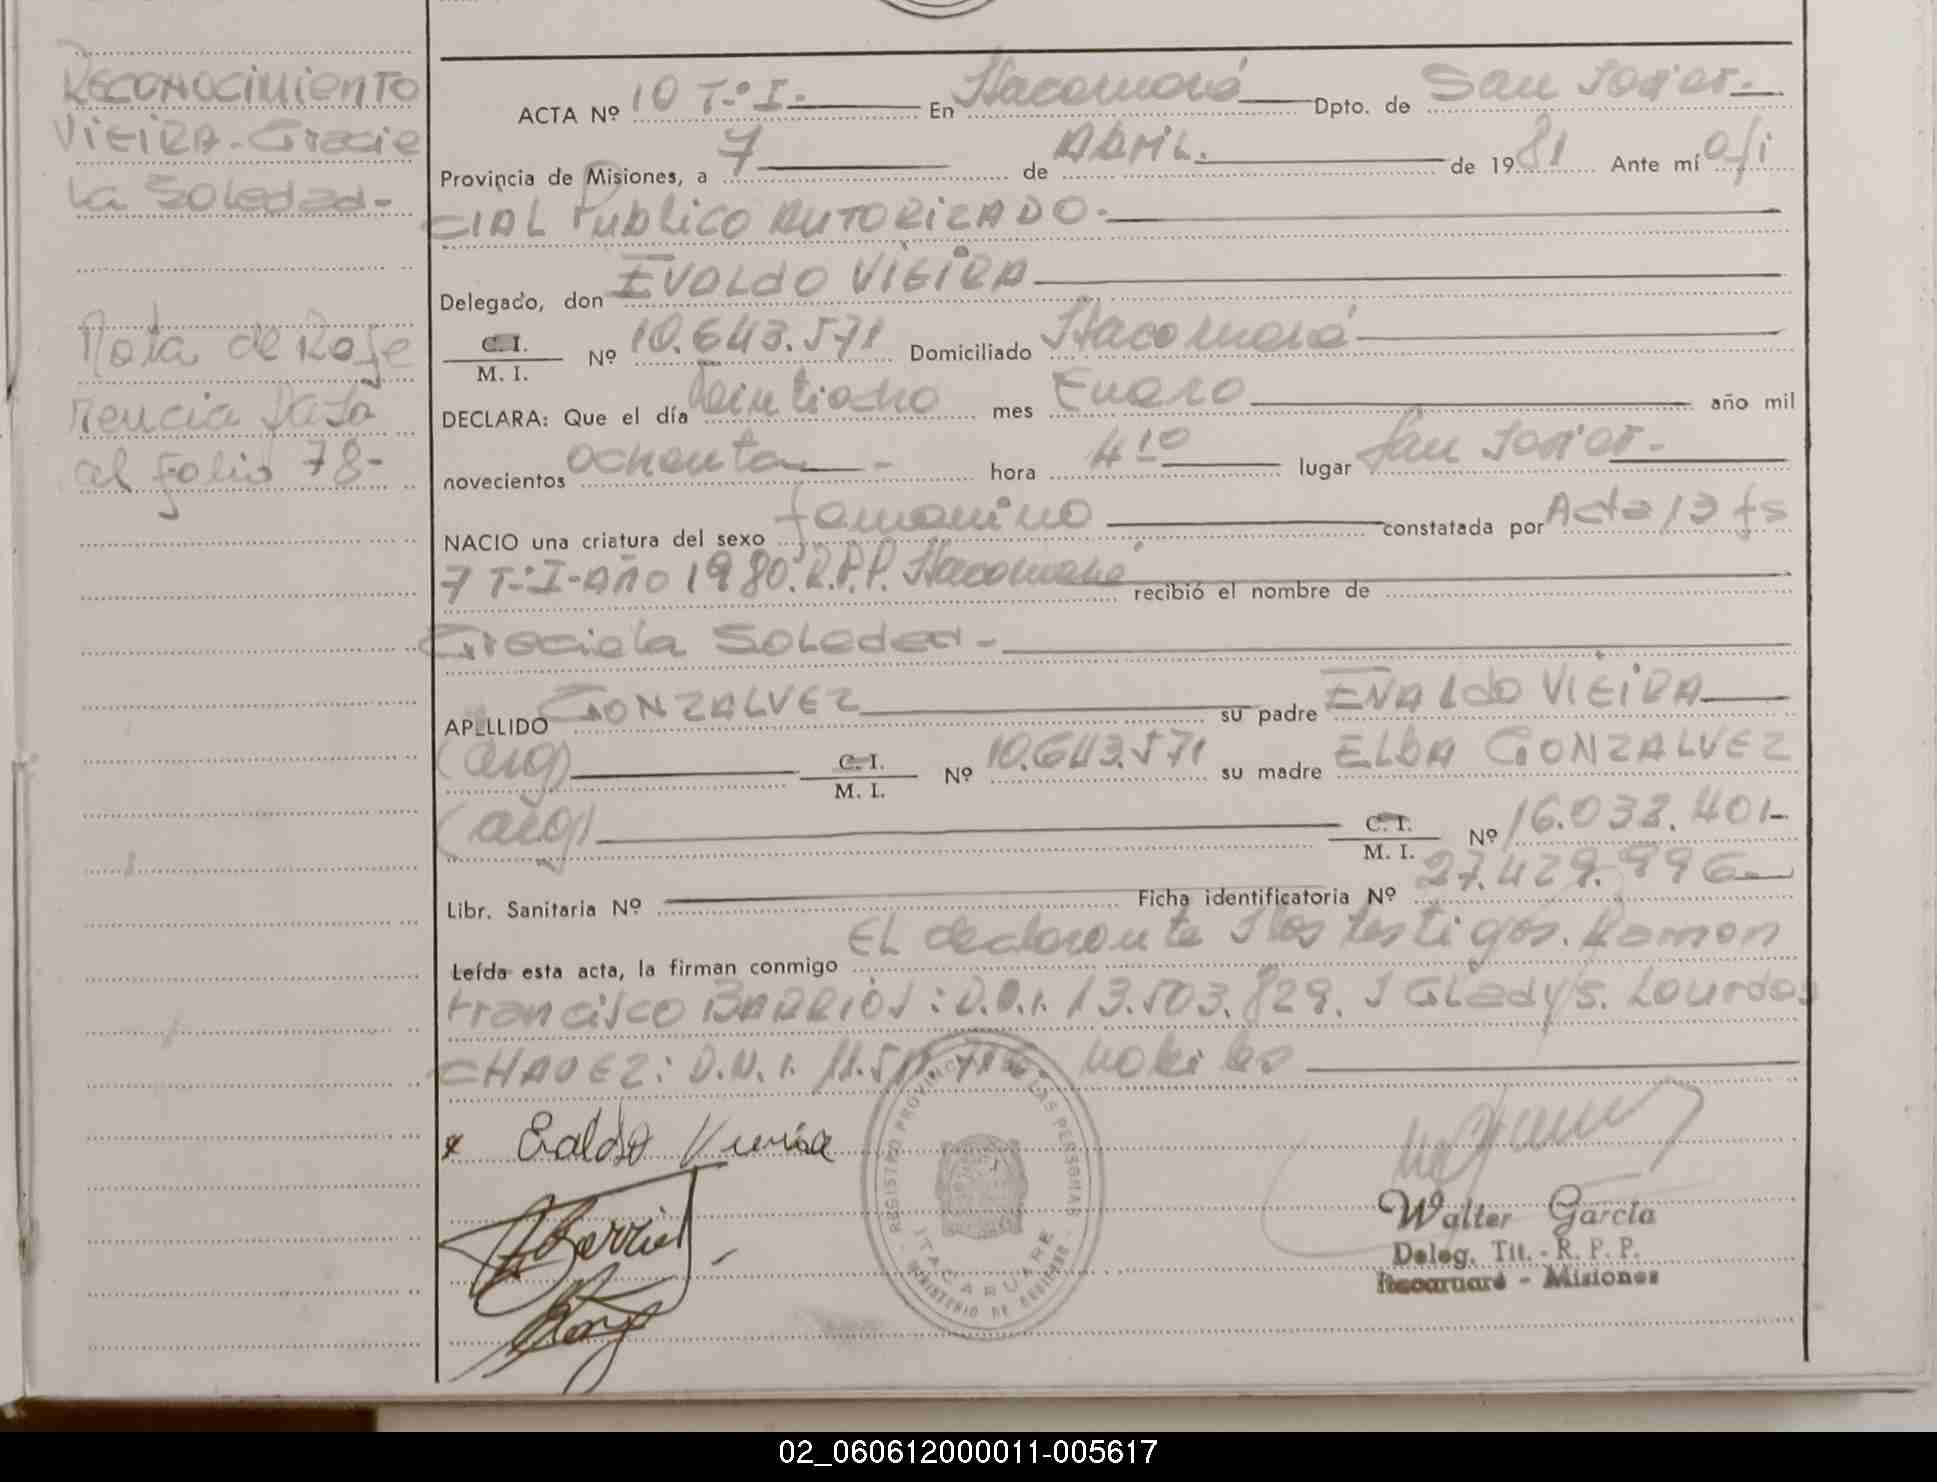 RECONOCIMIENTO
VIEIRA-Gracie
la Soledad-
Nota de Refe
rencia Pasa
al Folio 78-
ACTA Nº 10 T.º I- En Itacaruaré Dpto. de San Javier-
Provincia de Misiones, a 7 de ABRIL. de 1981 Ante mí Ofi
CIAL Publico AUTORIZADO-
Delegado, don EVALdO VIEIRA
C. I.
M. I. Nº 10.643.571 Domiciliado Itacaruaré
DECLARA: Que el día Veintiocho mes Enero año mil
novecientos Ochenta - hora 4 10 lugar San Javier-
NACIO una criatura del sexo femenino constatada por Acta 13 fs
7 T.º I-AÑO 1980. R.P.P. Itacaruaré recibió el nombre de
Graciela SOLedad-
APELLIDO GONZALVEZ su padre EVALdO VIEIRA
(arg) C. I.
M. I. Nº 10.643.571 su madre ELBA GONZALVEZ
(arg) C. I.
M. I. Nº 16.033.401-
Libr. Sanitaria Nº Ficha identificatoria Nº 27.429.996-
Leída esta acta, la firman conmigo EL declarante y los testigos. Ramon
Francisco BARRIOS: D.N.I. 13.503.829. y Gladys. Lourdes
CHAVEZ: D.N.I. habiles
x Evaldo Vieira
REGISTRO PROVINCIAL DE LAS PERSONAS
ITACARUARE
MINISTERIO DE GOBIERNO
Walter García
Deleg. Tit. - R. P. P.
Itacaruaré - Misiones
02_060612000011-005617